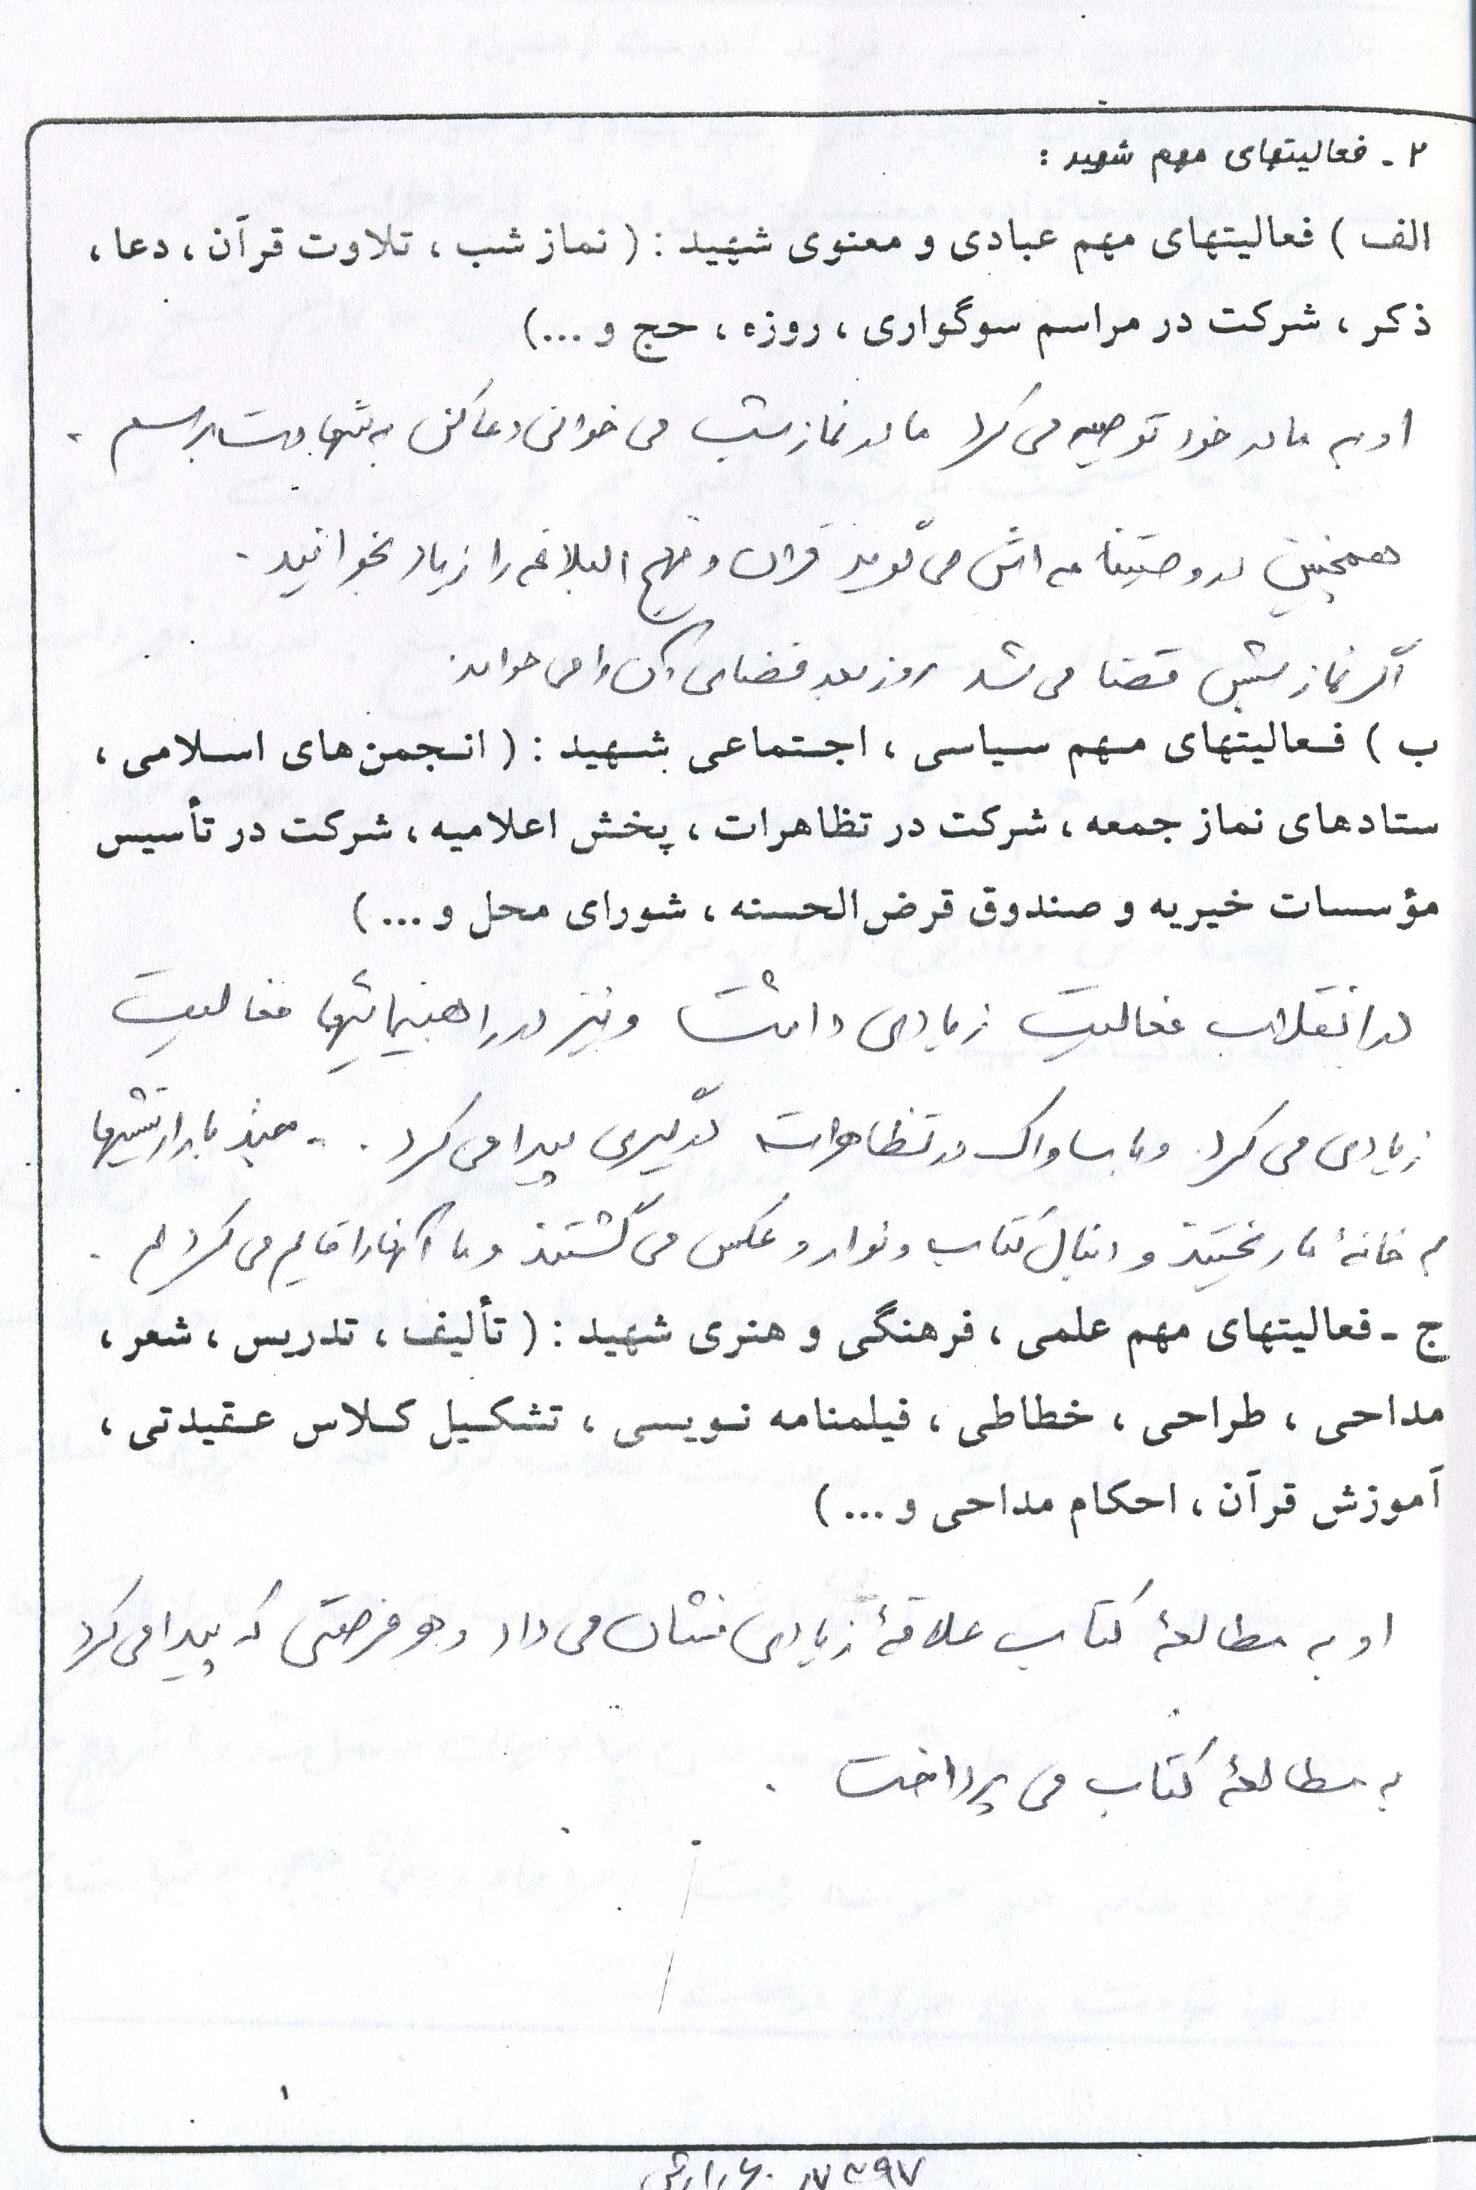 ۲ - فعالیتهای مهم شهید :
الف ) فعالیتهای مهم عبادی و معنوی شهید : ( نماز شب ، تلاوت قرآن ، دعا ،
ذکر ، شرکت در مراسم سوگواری ، روزه ، حج و ...)
او به مادر خود توصیه می کرد مادر نماز شب می خوانی دعا کن به شهادت برسم .
همچنین در وصیتنامه اش می گوید قران و نهج البلاغه را زیاد بخوانید .
اگر نماز شبش قضا می شد روز بعد قضای آن را می خواند
ب ) فعالیتهای مهم سیاسی ، اجتماعی شهید : ( انجمن‌های اسلامی ،
ستادهای نماز جمعه ، شرکت در تظاهرات ، پخش اعلامیه ، شرکت در تأسیس
مؤسسات خیریه و صندوق قرض‌الحسنه ، شورای محل و ... )
در انقلاب فعالیت زیادی داشت و نیز در راهپیمائیها فعالیت
زیادی می کرد. و با ساواک در تظاهرات درگیری پیدا می کرد . چند بار ارتشیها
به خانهٔ ما ریختند و دنبال کتاب و نوار و عکس می گشتند و ما آنها را قایم می کردیم .
ج - فعالیتهای مهم علمی ، فرهنگی و هنری شهید : ( تألیف ، تدریس ، شعر ،
مداحی ، طراحی ، خطاطی ، فیلمنامه نویسی ، تشکیل کلاس عقیدتی ،
آموزش قرآن ، احکام مداحی و ... )
او به مطالعهٔ کتاب علاقهٔ زیادی نشان می داد و هر فرصتی که پیدا می کرد
به مطالعهٔ کتاب می پرداخت .